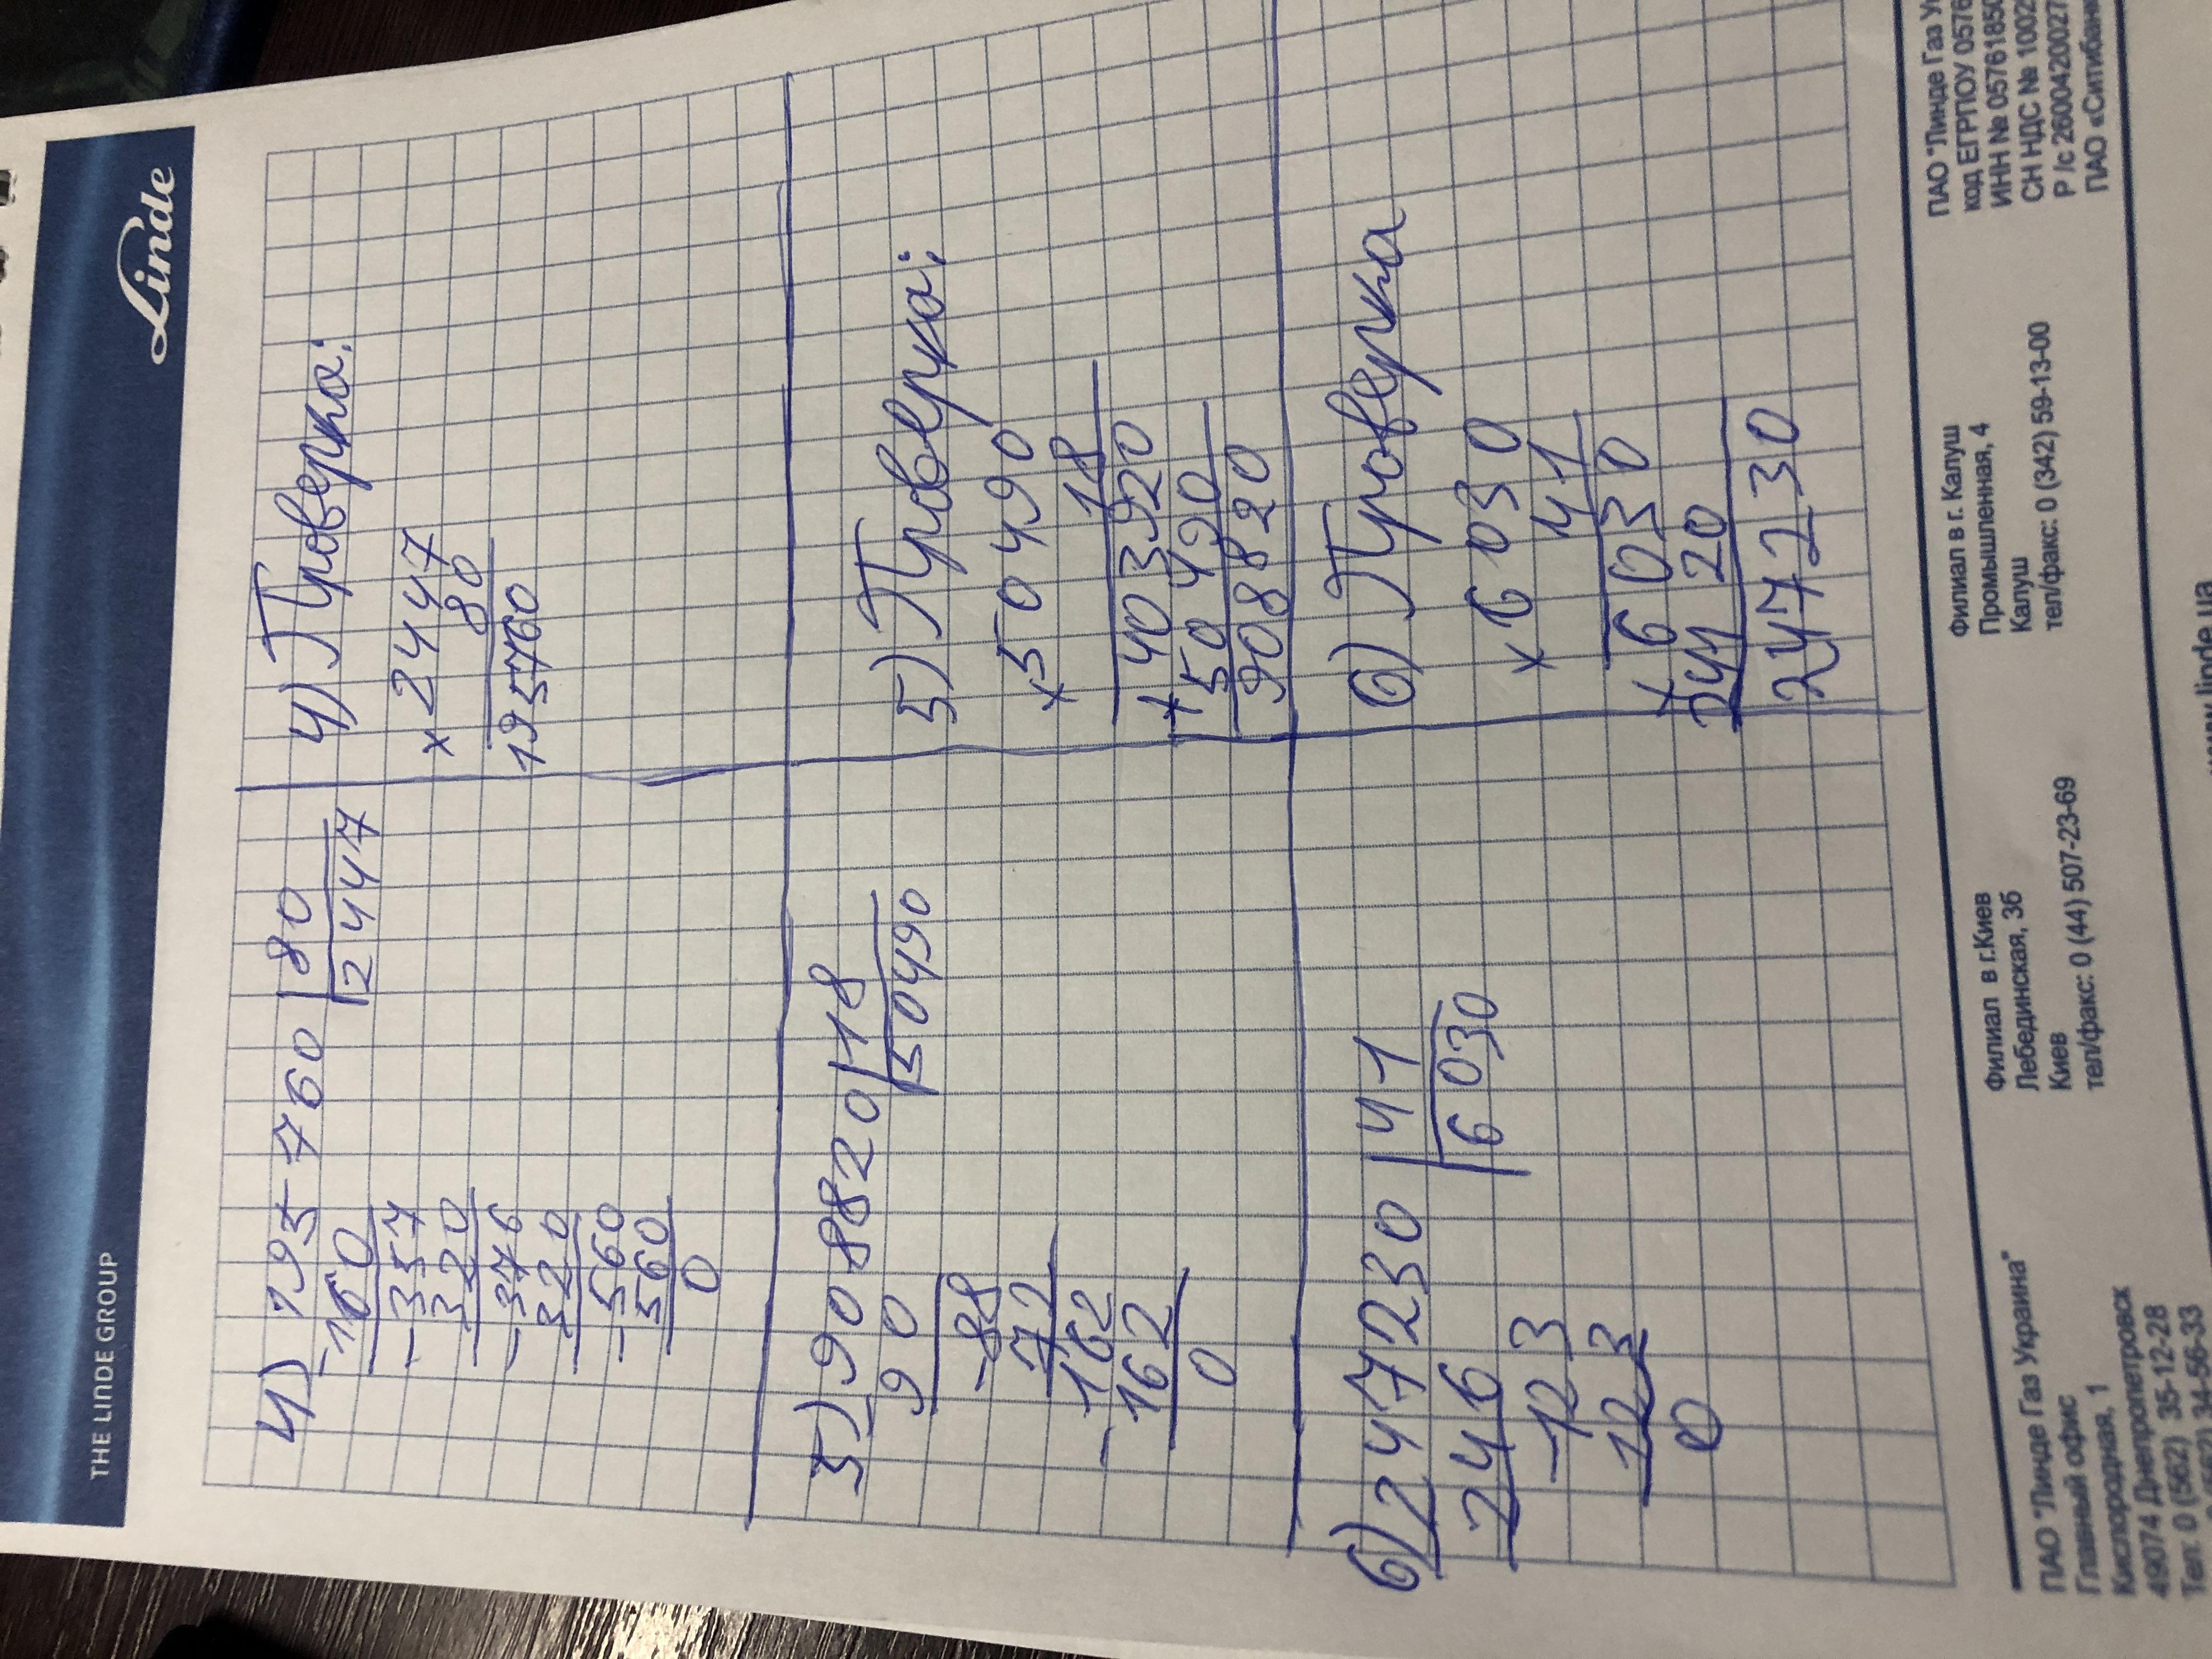 THE LINDE GROUP
Linde
4) 195760 | 80
-160
2447
-357
320
-376
320
-560
560
0
4) Проверка:
× 2447
80
195760
5) 908820 | 18
90
50490
-88
72
-162
162
0
5) Проверка:
× 50490
18
403920
+ 50490
908820
6) 247230 | 41
246
6030
-123
123
0
6) Проверка
× 6030
41
+ 6030
24120
247230
ПАО "Линде Газ Украина"
Главный офис
Кислородная, 1
49074 Днепропетровск
Тел: 0 (562) 35-12-28
34-56-33
Филиал в г.Киев
Лебединская, 3б
Киев
тел/факс: 0 (44) 507-23-69
Филиал в г. Калуш
Промышленная, 4
Калуш
тел/факс: 0 (342) 59-13-00
ПАО "Линде Газ Ук
код ЕГРПОУ 0576
ИНН № 05761850
СН НДС № 1002
Р /с 26004200027
ПАО «Ситибанк
www.linde.ua